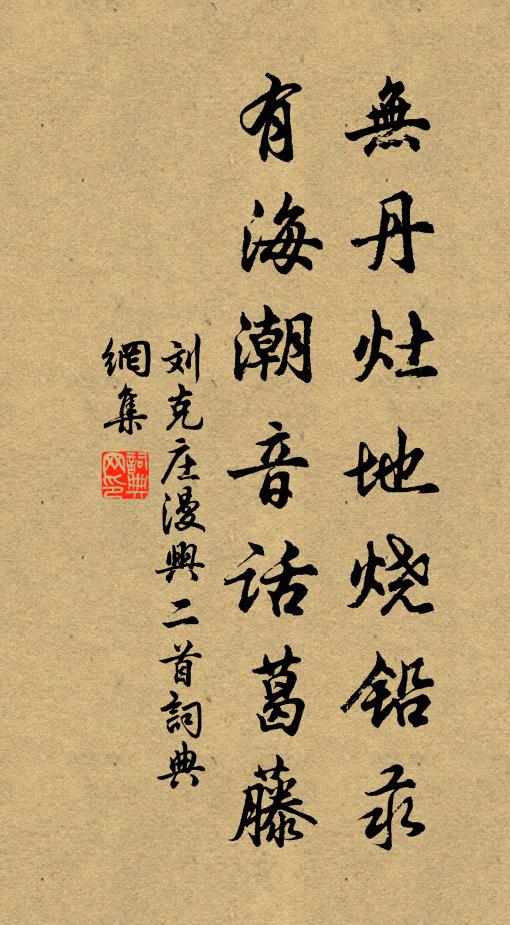 無丹灶地烧鉛汞
有海潮音话葛藤
刘克庄漫興二首詞典
網集
詞典网印